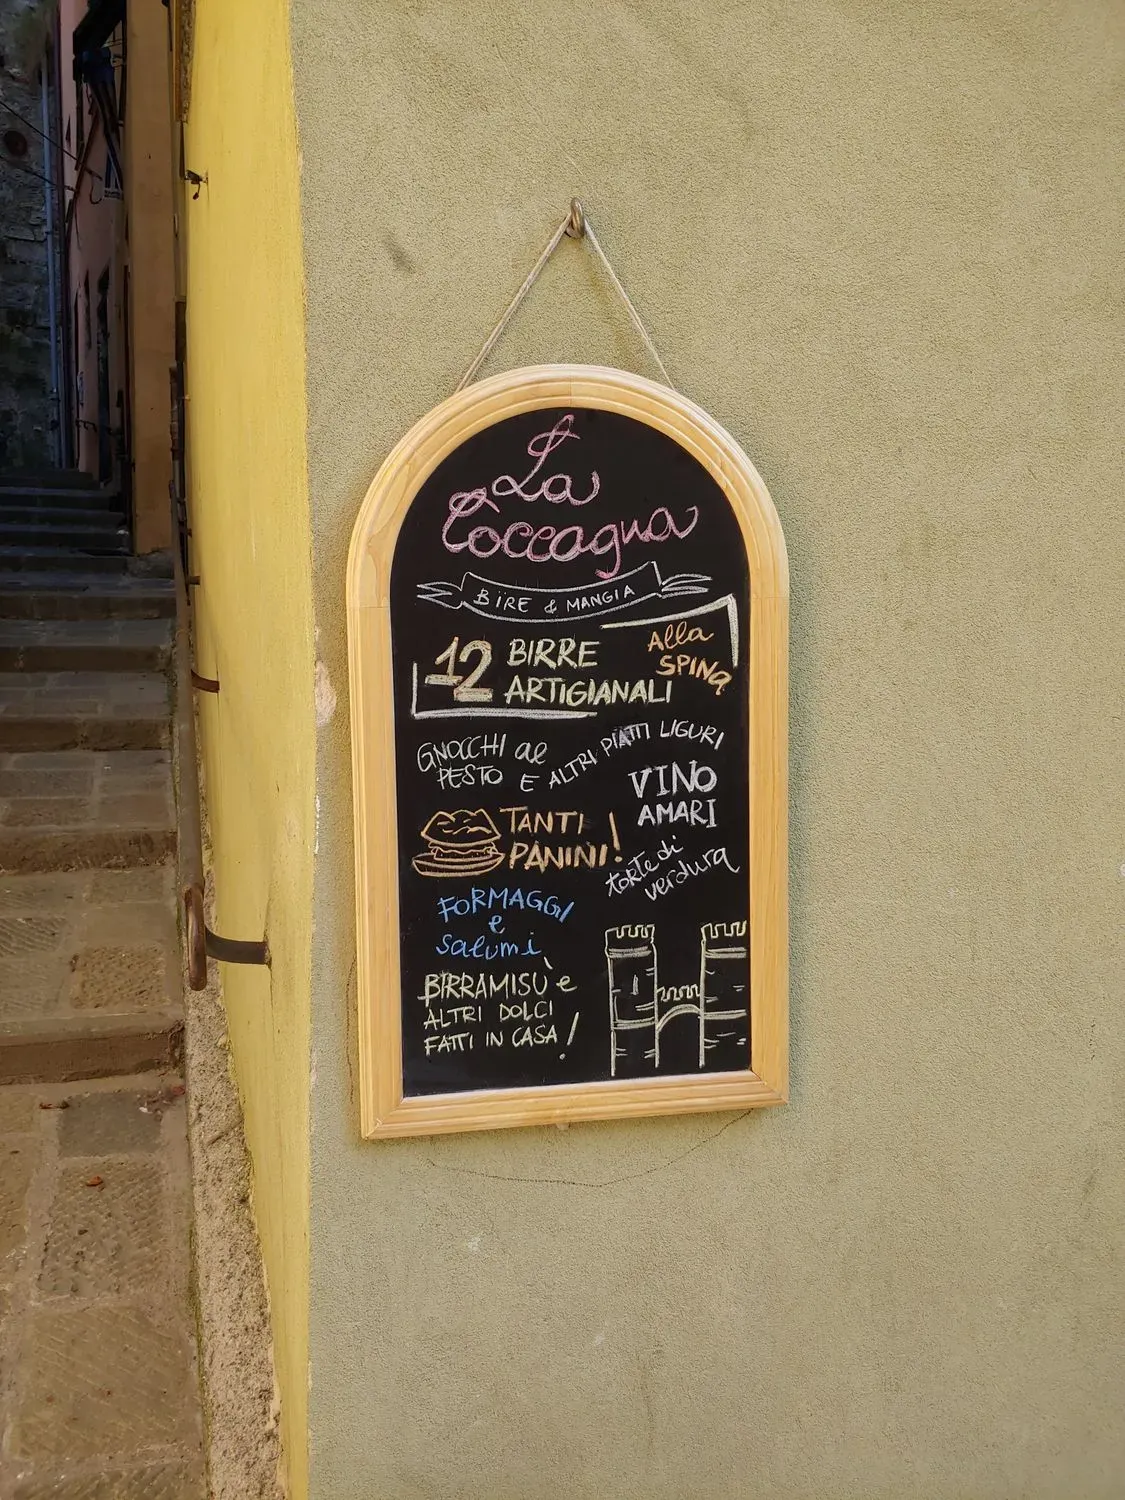 La
Coccagna
BIRE & MANGIA
12 BIRRE
ARTIGIANALI
Alla
SPINA
GNOCCHI al
PESTO
E ALTRI PIATTI LIGURI
VINO
AMARI
TANTI
PANINI!
torte di
verdura
FORMAGGI
e
salumi
BIRRAMISÙ e
ALTRI DOLCI
FATTI IN CASA!